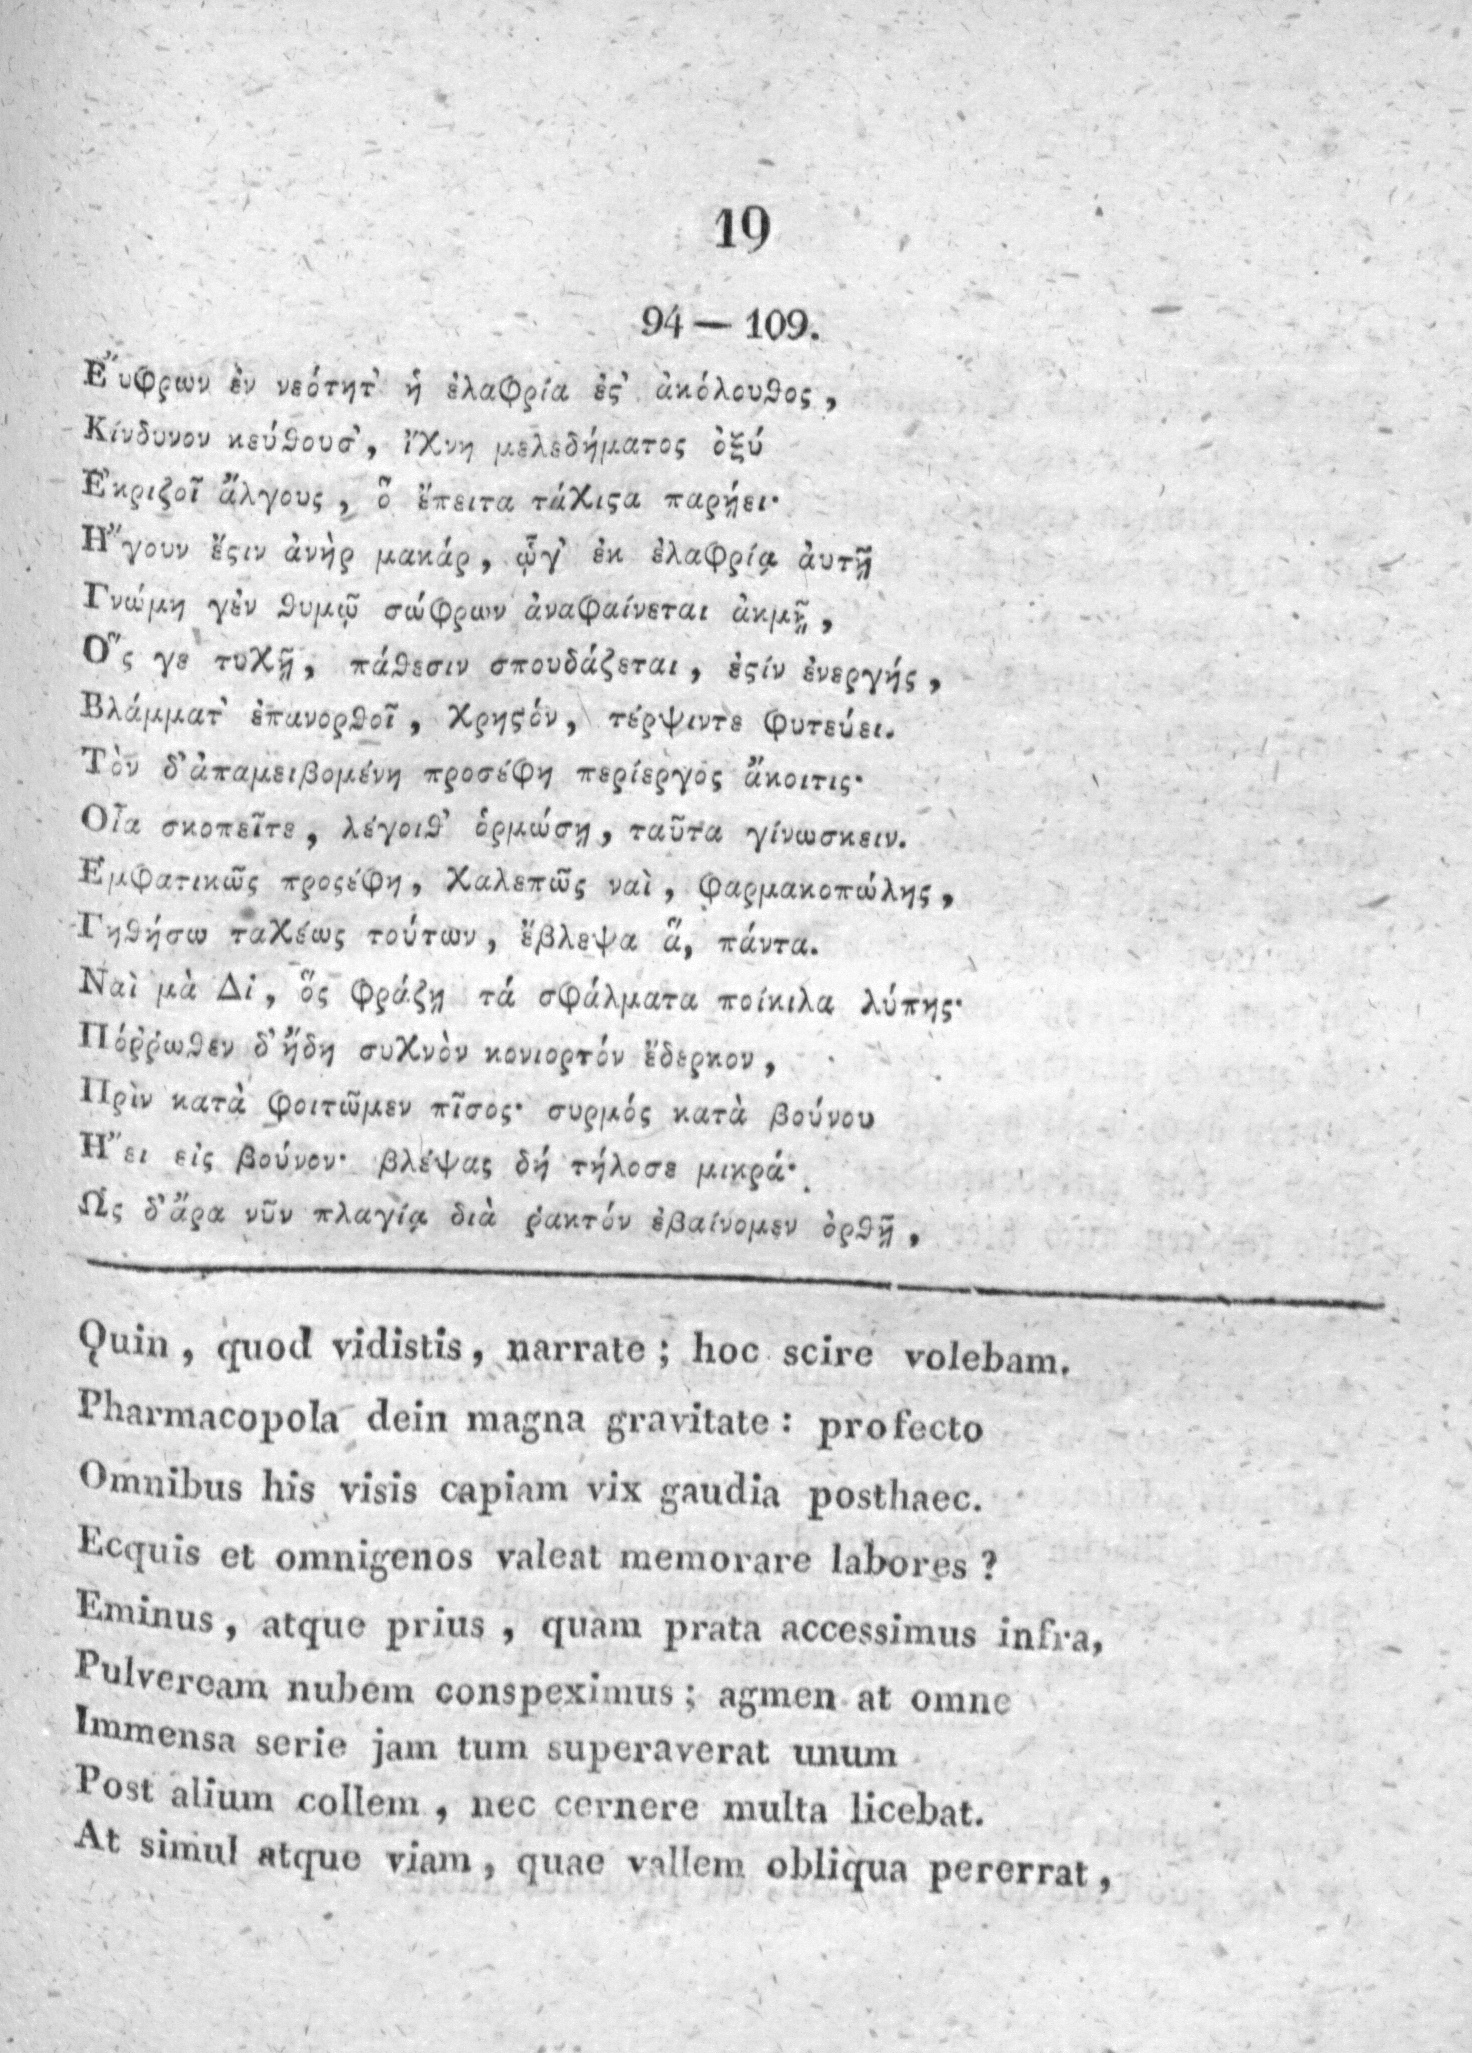 19
94 — 109.
Ἔυφρων ἐν νεότητ᾽ ἡ ἐλαφρία ἐς᾽ ἀκόλουθος,
Κίνδυνον κεύθουσ᾽, ἴχνη μελεδήματος ὀξύ
Ἐκριζοῖ ἄλγους, ὃ ἔπειτα τάχιςα παρῄει·
Ἤγουν ἔςιν ἀνὴρ μακάρ, ᾧγ᾽ ἐκ ἐλαφρίᾳ ἀυτῇ
Γνώμη γἐν θυμῷ σώφρων ἀναφαίνεται ἀκμῇ,
Ὅς γε τυχῇ, πάθεσιν σπουδάζεται, ἐςίν ἐνεργής,
Βλάμματ᾽ ἐπανορθοῖ, χρηςόν, τέρψιντε φυτεύει.
Τὸν δ᾽ἀπαμειβομένη προσέφη περίεργος ἄκοιτις·
Οἷα σκοπεῖτε, λέγοιθ᾽ ὁρμώσῃ, ταῦτα γίνωσκειν.
Ἐμφατικῶς προςέφη, χαλεπῶς ναὶ, φαρμακοπώλης,
Γηθήσω ταχέως τούτων, ἔβλεψα ἅ, πάντα.
Ναὶ μὰ Δί, ὅς φράζῃ τά σφάλματα ποίκιλα λύπης·
Πόῤῥωθεν δ᾽ἤδη συχνὸν κονιορτόν ἔδερκον,
Πρὶν κατὰ φοιτῶμεν πῖσος· συρμός κατὰ βούνου
Ἤει εἰς βούνον· βλέψας δή τήλοσε μικρά·
Ὡς δ᾽ἄρα νῦν πλαγίᾳ διὰ ῥακτόν ἐβαίνομεν ὀρθῇ,
Quin, quod vidistis, narrate; hoc scire volebam.
Pharmacopola dein magna gravitate: profecto
Omnibus his visis capiam vix gaudia posthaec.
Ecquis et omnigenos valeat memorare labores?
Eminus, atque prius, quam prata accessimus infra,
Pulveream nubem conspeximus; agmen at omne
Immensa serie jam tum superaverat unum
Post alium collem, nec cernere multa licebat.
At simul atque viam, quae vallem obliqua pererrat,